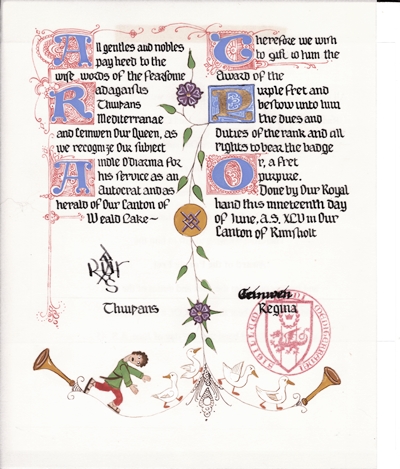 All gentles and nobles
pay heed to the
wise words of the fearsome
Radagaisus
Thurpans
Mediterranae
and Ceinwen Our Queen, as
we recognize Our subject
Aindle O'Diarma for
his service as an
Autocrat and as
herald of Our Canton of
Weald Lake~
Therefore we wish
to gift to him the
Award of the
Purple Fret and
bestow unto him
the dues and
Duties of the rank and all
rights to bear the badge
Or, a fret
purpure.
Done by Our Royal
hand this nineteenth day
of June, A.S. XLV in Our
Canton of Rimsholt
Thurpans
Ceinwen
Regina